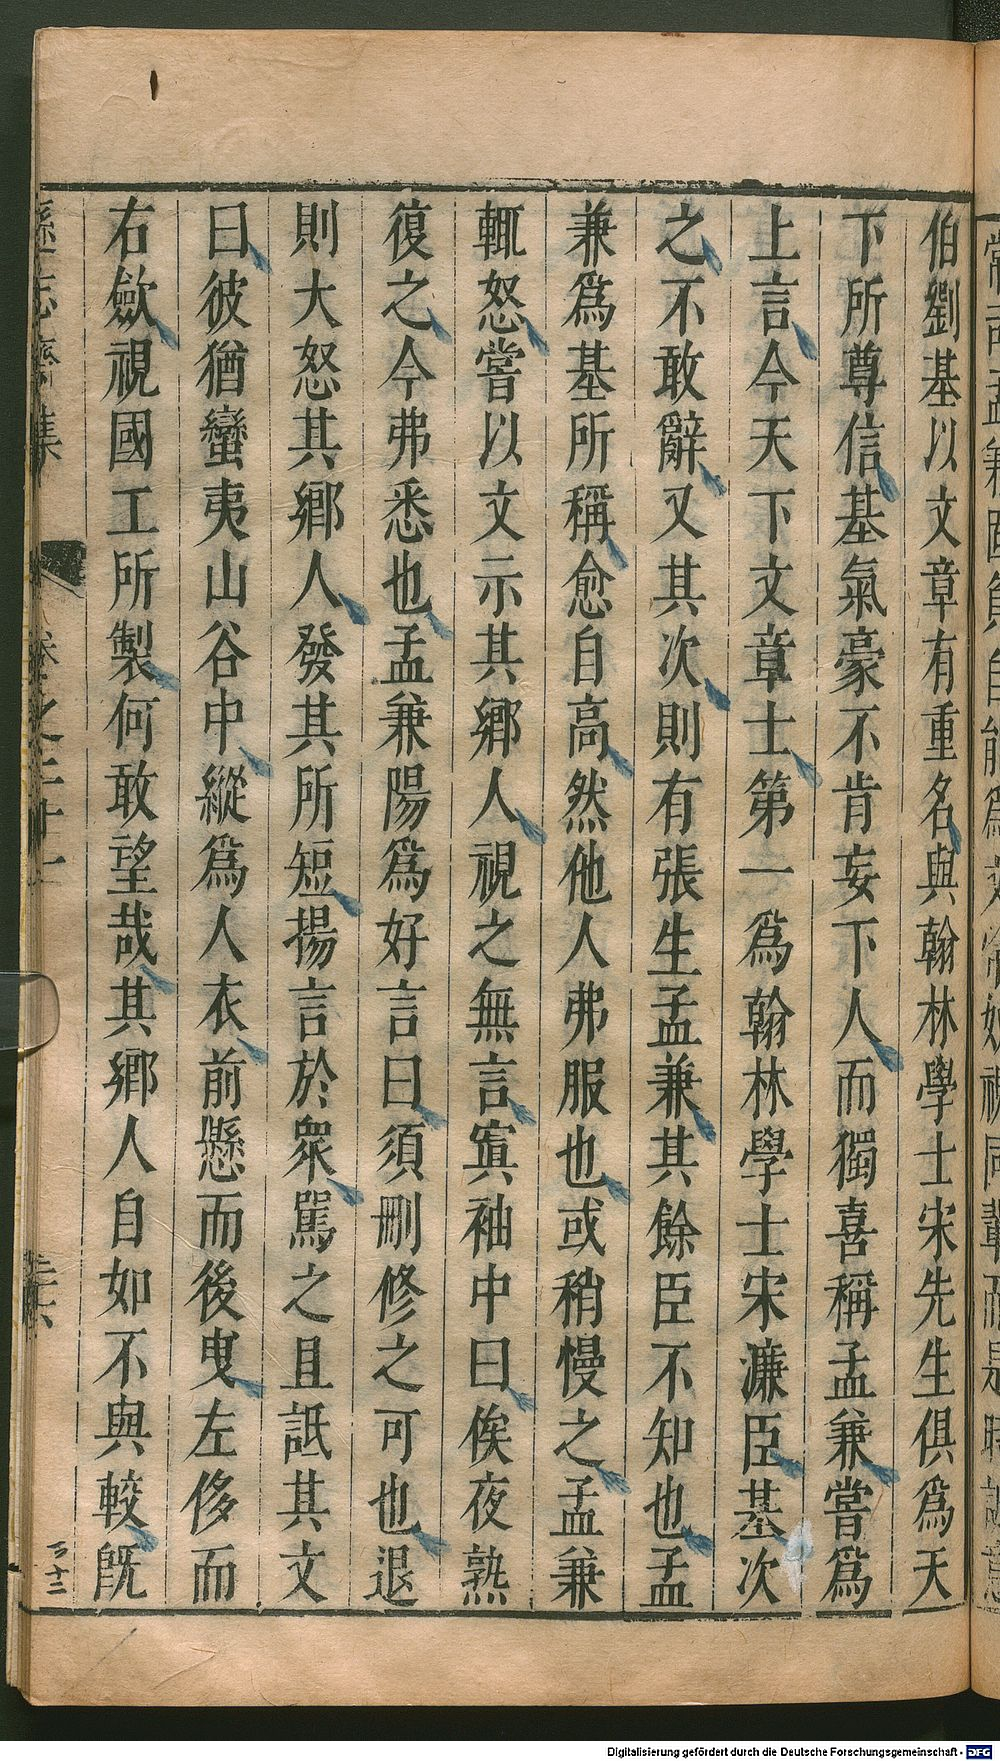 伯劉基以文章有重名與翰林學士宋先生俱爲天
下所尊信基氣豪不肯妄下人而獨喜稱孟兼嘗爲
上言今天下文章士第一爲翰林學士宋濂臣基次
之不敢辭又其次則有張生孟兼其餘臣不知也孟
兼爲基所稱愈自高然他人弗服也或稍慢之孟兼
輒怒嘗以文示其鄉人視之無言寘袖中曰俟夜熟
復之今弗悉也孟兼陽爲好言曰須刪修之可也退
則大怒其鄉人發其所短揚言於衆罵之且詆其文
曰彼猶蠻夷山谷中縱爲人衣前懸而後曳左侈而
右歛視國工所製何敢望哉其鄉人自如不與較旣
卷之二十一
Digitalisierung gefördert durch die Deutsche Forschungsgemeinschaft - DFG